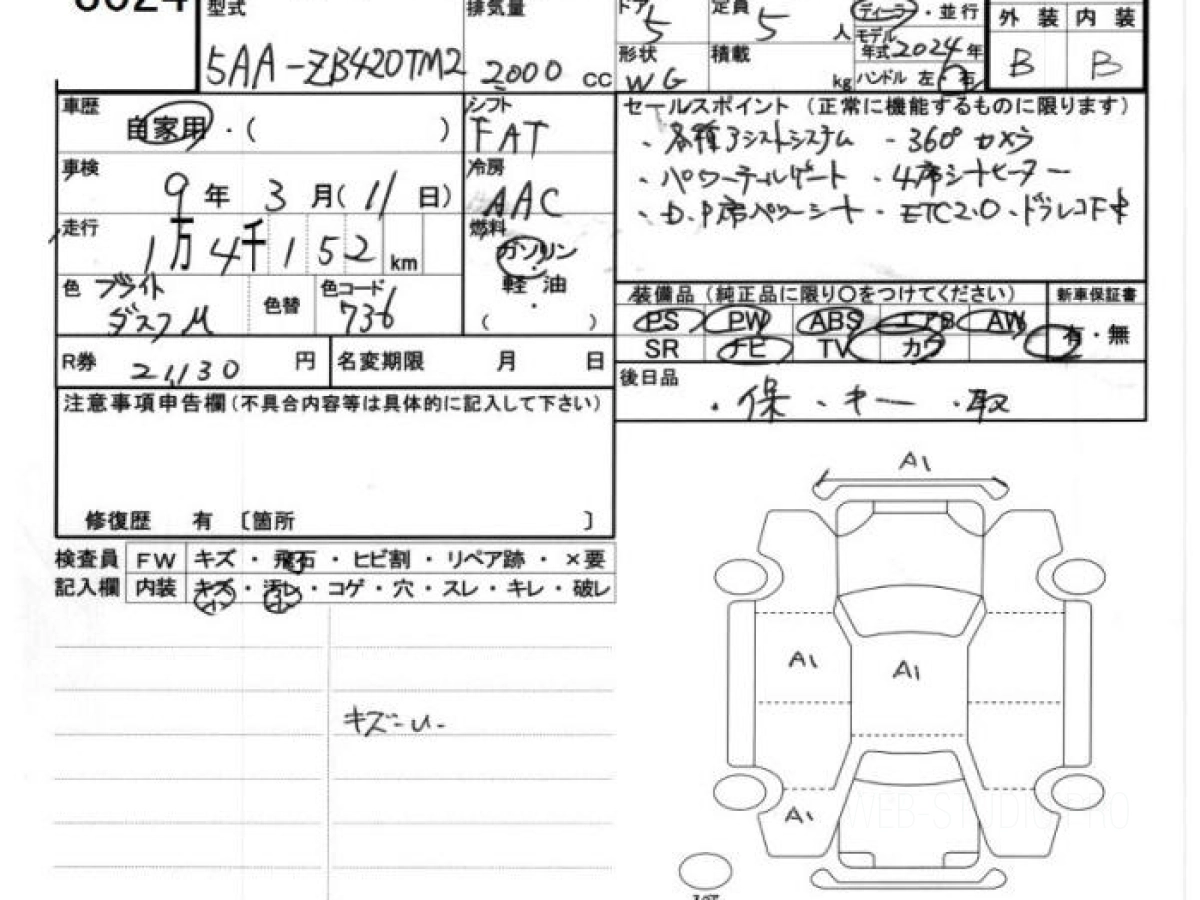 型式 排気量 ドア 5 定員 5 人 ディーラー・並行
5AA-ZB420TM2 2000 cc
形状 WG 積載 kg
モデル年式 2024年
ハンドル 左・右
外装 内装
B B
車歴 自家用・( )
シフト FAT
車検 9年3月(11日)
冷房 AAC
走行 1万4千152km
燃料 ガソリン・軽油・( )
色 ブライトダスクM 色替 色コード 736
R券 21,130円 名変期限 月 日
セールスポイント(正常に機能するものに限ります)
・各種アシストシステム ・360°カメラ
・パワーテールゲート ・4席シートヒーター
・D.P席パワーシート ・ETC2.0 ・ドラレコF
装備品(純正品に限り○をつけてください) 新車保証書
PS PW ABS エアB AW 有・無
SR ナビ TV カワ
後日品
・保 ・キー ・取
注意事項申告欄(不具合内容等は具体的に記入して下さい)
修復歴 有 〔箇所 〕
検査員 FW キズ・飛石・ヒビ割・リペア跡・×要
記入欄 内装 キズ・汚レ・コゲ・穴・スレ・キレ・破レ
小 小
キズ-U-
A1
A1
A1
A1
WEB-STUDIO PRO